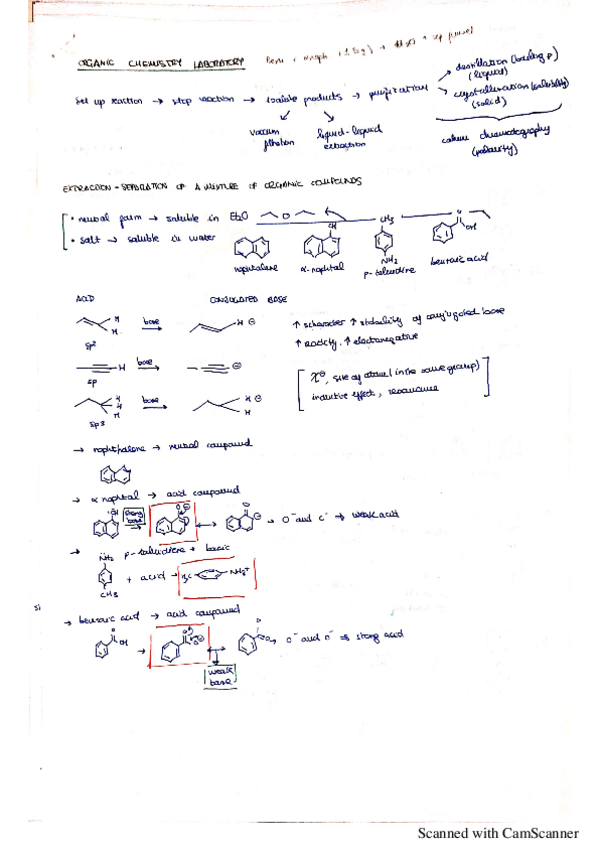 ORGANIC CHEMISTRY LABORATORY
Set up reaction → stop reaction → isolate products → purification
destillation (boiling p)
(liquid)
crystallization (solubility)
(solid)
vaccum
filtration
liquid-liquid
extraction
column chromatography
(polarity)
EXTRACTION - SEPARATION OF A MIXTURE OF ORGANIC COMPOUNDS
• neutral form → soluble in Et2O
• salt → soluble in water
O
OH
CH3
NH2
O
OH
naphtalene
α-naphtol
p-toluidine
benzoic acid
ACID
CONJUGATED BASE
H
H
base
H ⊖
sp2
↑ s character ↑ stability of conjugated base
↑ acidity, ↑ electronegative
H
base
⊖
sp
size of atom (in the same group)
inductive effect, resonance
H
H
H
base
H ⊖
H
sp3
→ naphthalene → neutral compound
→ α naphtol → acid compound
OH
strong
base
O ⊖
O
⊖
→ O⁻ and C⁻ → weak acid
→ p-toluidine → basic
NH2
CH3
+ acid →
H3C
NH3+
→ benzoic acid → acid compound
O
OH
O⊖
→ O⁻ and O⁻ ⇒ strong acid
weak
base
Scanned with CamScanner